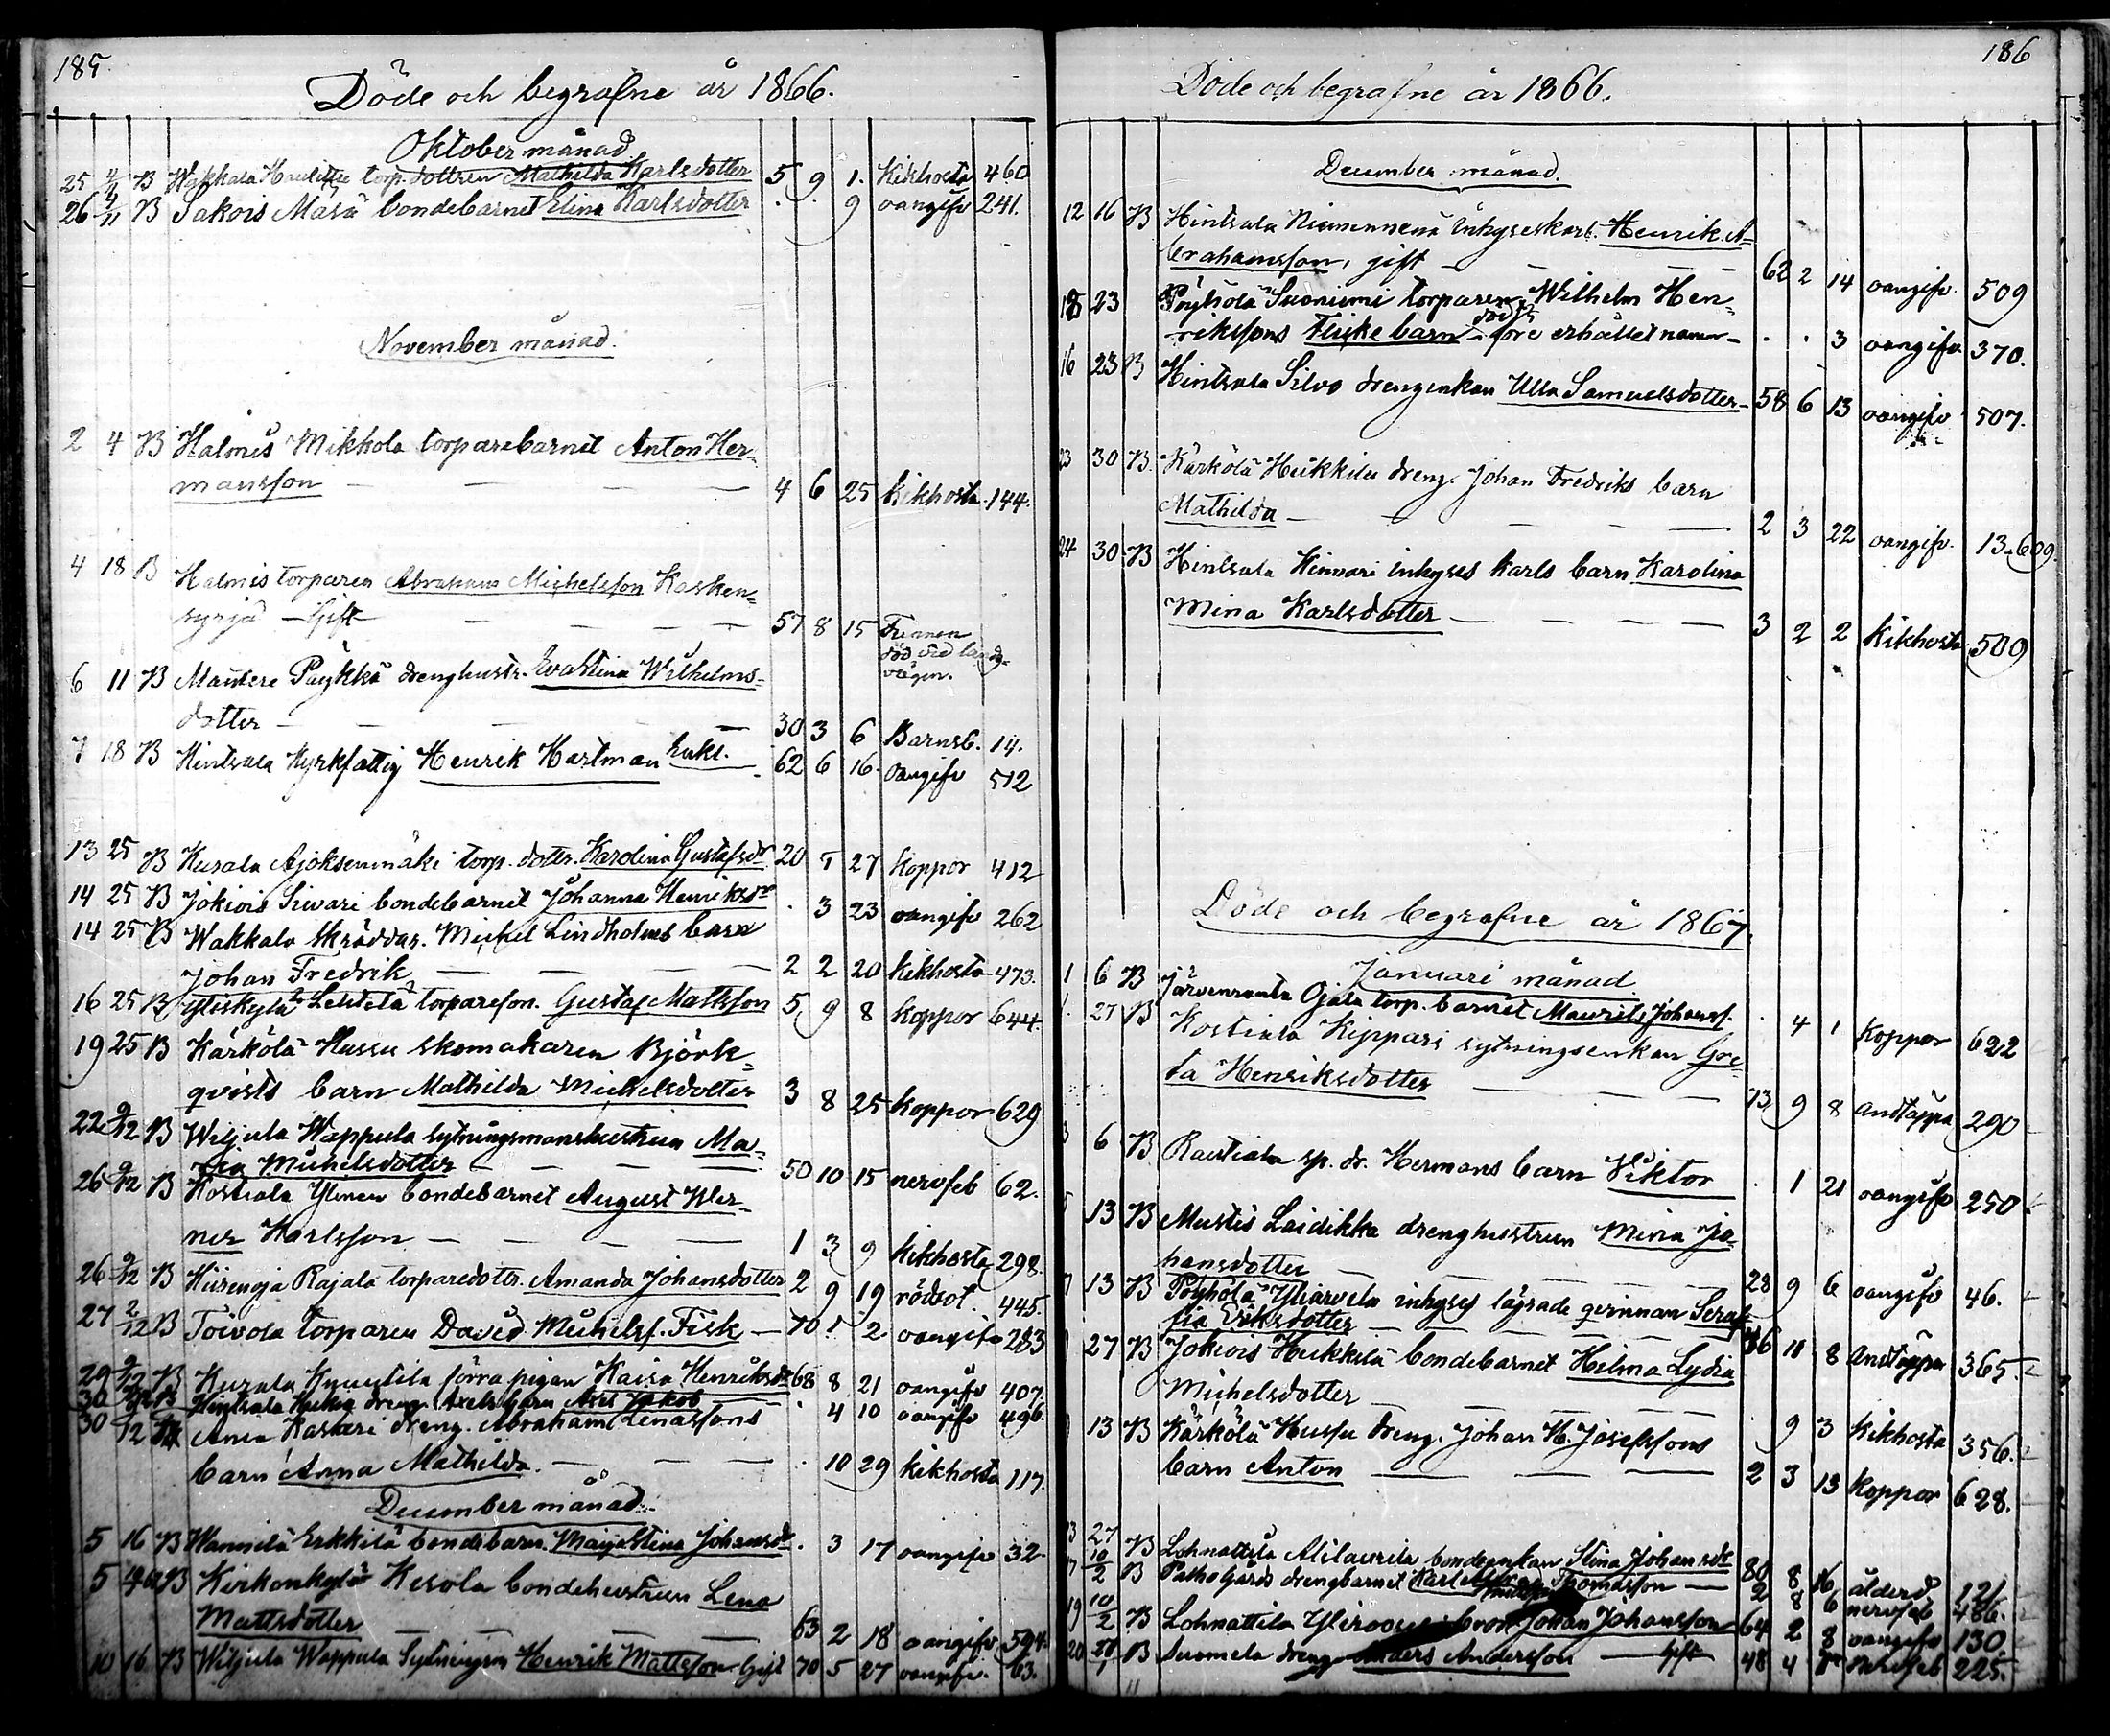 185.
Döde och begrafne år 1866.
Oktober månad
25 4/11 B Wakkala torp. dottren Mathilda Karlsdotter 5 9 1. Kikhosta 460
26 4/11 B Sakois Masa bondebarnet Elina Karlsdotter . . 9 oangifv 241.
November månad.
2 4 B Halmis Mikkola torparebarnet Anton Her-
mansson 4 6 25 Kikhosta 144.
4 18 B Halmis torparen Abraham Michelsson Kasken-
syrjä – Gift 57 8 15 Funnen
död vid lands-
vägen.
6 11 B Mautere drenghustr. Eva Stina Wilhelms-
dotter 30 3 6 Barnsb. 14.
7 18 B Hintsala Kyrkfattig Henrik Hartman Enkl. 62 6 16 oangifv 512
13 25 B Kusala Ajoksenmäki torp. dottr. Karolina Gustafsdr 20 5 27 Koppor 412
14 25 B Jokiois Siwari bondebarnet Johanna Henriksdr . 3 23 oangifv 262
14 25 B Wakkala Skräddar. Michel Lindholms barn
Johan Fredrik 2 2 20 Kikhosta 473.
16 25 B Yliskylä torpareson. Gustaf Mattsson 5 9 8 Koppor 644.
19 25 B Kärkölä Hassu skomakaren Björk-
qvists barn Mathilda Michelsdotter 3 8 25 Koppor 629
22 2/12 B Wiljula Wappula sytningsmanshustrun Ma-
ria Michelsdotter 50 10 15 nervfeb 62.
26 2/12 B Kostiala Ylinen bondebarnet August Wer-
ner Karlsson 1 3 9 Kikhosta 298.
26 2/12 B Hiisenoja Rajala torparedottr. Amanda Johansdotter 2 9 19 rödsot 445.
27 2/12 B Toivola torparen David Michelss. Fisk 70 1 2 oangifv 283
29 2/12 B Kusala Knuutila förra pigan Kaisa Henriksdr 68 8 21 oangifv 407.
30 B Hintsala dreng Axels barn Axel Jakob . 4 10 oangifv 496.
30 /12 dreng. Abraham
barn Anna Mathilda. . 10 29 Kikhosta 117.
December månad.
5 16 B Wannilä Erkkilä bondebarn. Maija Stina Johansdr . 3 17 oangifv 32
5 B Kirkonkylä Kesola bondehustrun Lena
Mattsdotter 63 2 18 oangifv 594.
10 16 B Wiljula Wappula Sytningsm Henrik Mattsson Gift 70 5 27 oangifv. 63.
186
Döde och begrafne år 1866.
December månad.
12 16 B Hintsala Inhyseskarl. Henrik A-
brahamsson, gift 62 2 14 oangifv 509
15 23 Pöyhölä Suoniemi torparen Wilhelm Hen-
rikssons Flickebarn död före erhållet namn . . 3 oangifv 370.
16 23 B Hintsala Silvo drengenkan Ulla Samuelsdotter 58 6 13 oangifv 507.
23 30 B. Kärkölä Heikkilä dreng. Johan Fredriks barn
Mathilda 2 3 22 oangifv. 13.609
24 30 B Hintsala Kinnari inhyses karls barn Karolina
Mina Karlsdotter 3 2 2 Kikhosta 509
Döde och begrafne år 1867.
Januari månad.
1 6 B Järvenranta Ojala torp. barnet Maurits Johanss. . 4 1 Koppor 622
27 B Kostiala Kippari sytningsenkan Gre-
ta Henriksdotter 73 9 8 andtäppa 290
6 B Rautiala sp. dr. Hermans barn Viktor . 1 21 oangifv 250
13 B Mustis Laidikka drenghustrun Mina Jo-
hansdotter 28 9 6 oangifv 46.
13 B Pöyhölä inhyses lägrade qvinnan Sera-
fia Eriksdotter 46 11 8 Andtäppa 365.
27 B Jokiois Heikkilä bondebarnet Hilma Lydia
Michelsdotter . 9 3 Kikhosta 356.
13 B Kärkölä Hussu dreng. Johan H. Josefssons
barn Anton 2 3 13 Koppor 628.
13 27 B Lohnattila Alilaurila bondeenkan Stina Johansdr 80 8 16 ålderd 121.
10/2 B drengbarnet Karl Thomasson 2 8 6 nervfeb 486.
19 10/2 B Lohnattila Johan Johansson 64 2 8 oangifv 130
20 B Suomela dreng Anders Andersson Gift 48 4 nervfeb 225.